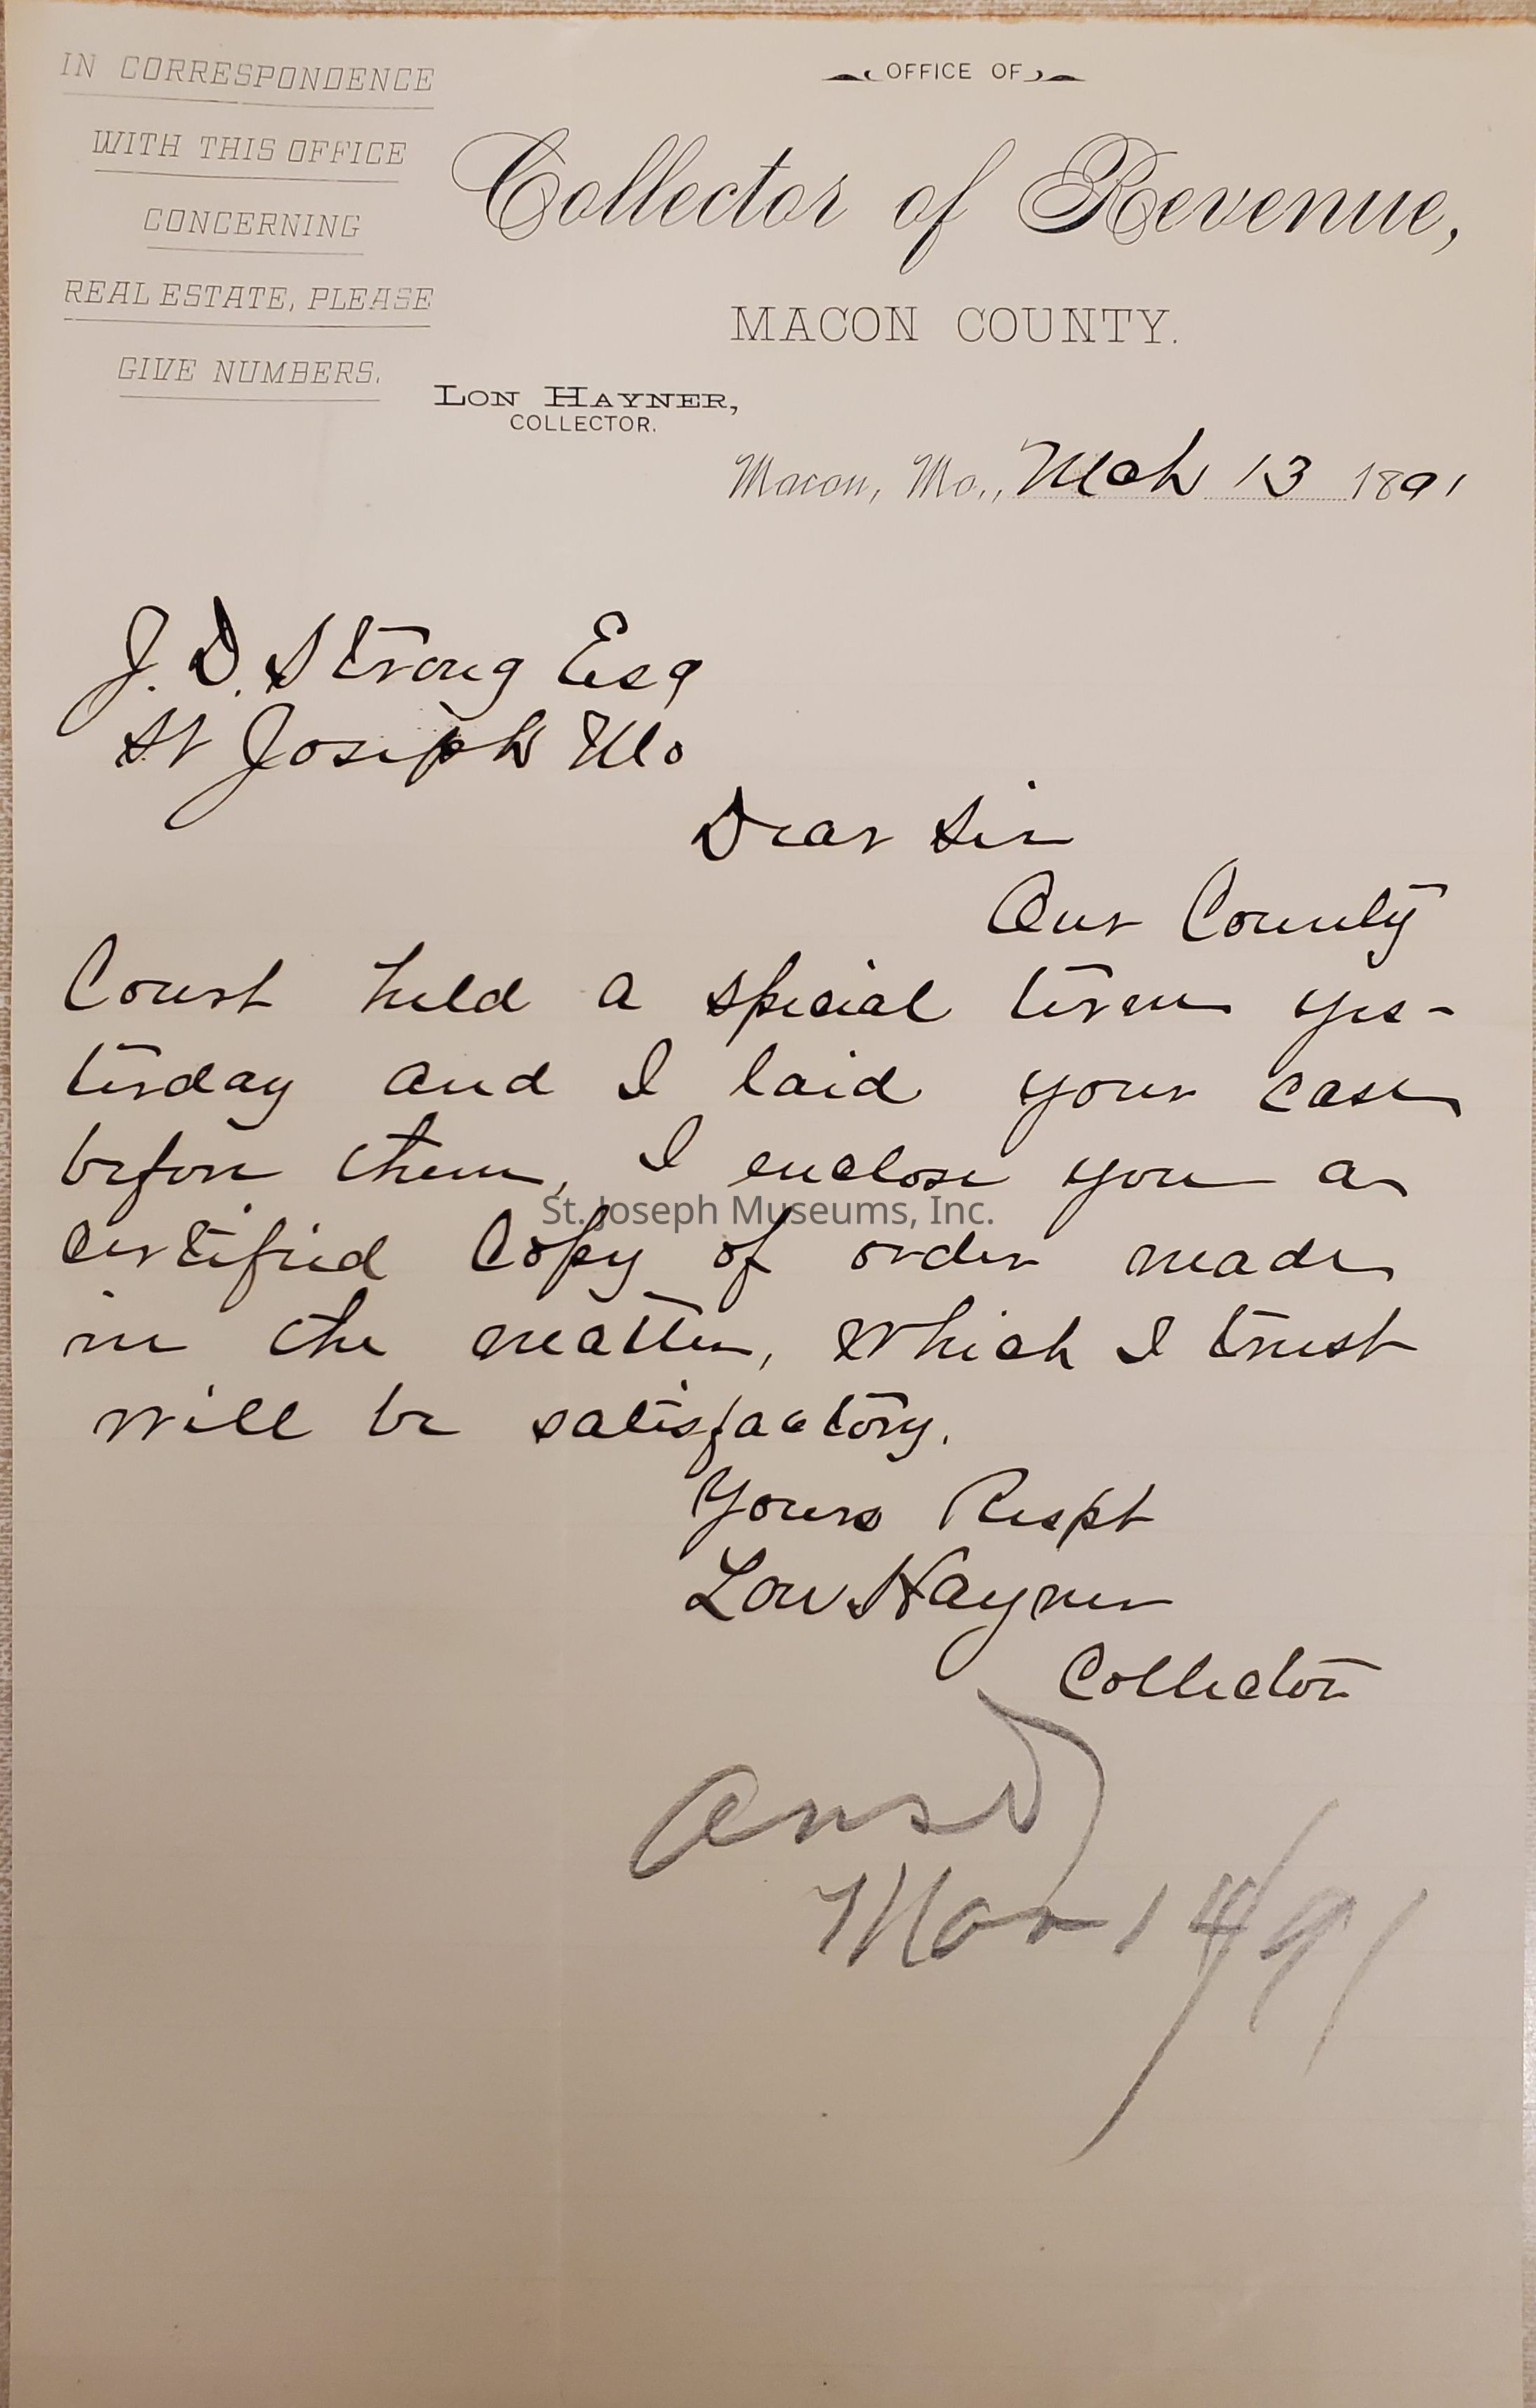 IN CORRESPONDENCE
WITH THIS OFFICE
CONCERNING
REAL ESTATE, PLEASE
GIVE NUMBERS.
OFFICE OF
Collector of Revenue,
MACON COUNTY.
LON HAYNER,
COLLECTOR.
Macon, Mo., Mch 13 1891
J. D. Strong Esq
St Joseph Mo
Dear Sir
Our County
Court held a special term yes-
terday and I laid your case
before them, I enclose you a
St. Joseph Museums, Inc.
certified Copy of order made
in the matter, which I trust
will be satisfactory.
Yours Respt
Lon Hayner
Collector
Ansd
Mar 14/91